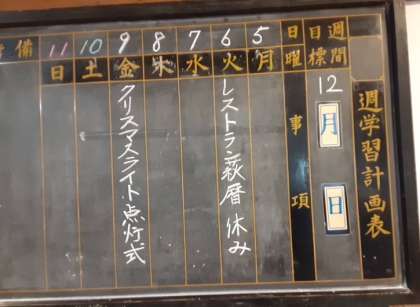 週学習計画表
週間
目標
12月 日
日
曜
事項
5 月
6 火 レストラン萩暦 休み
7 水
8 木
9 金 クリスマスライト点灯式
10 土
11 日
備